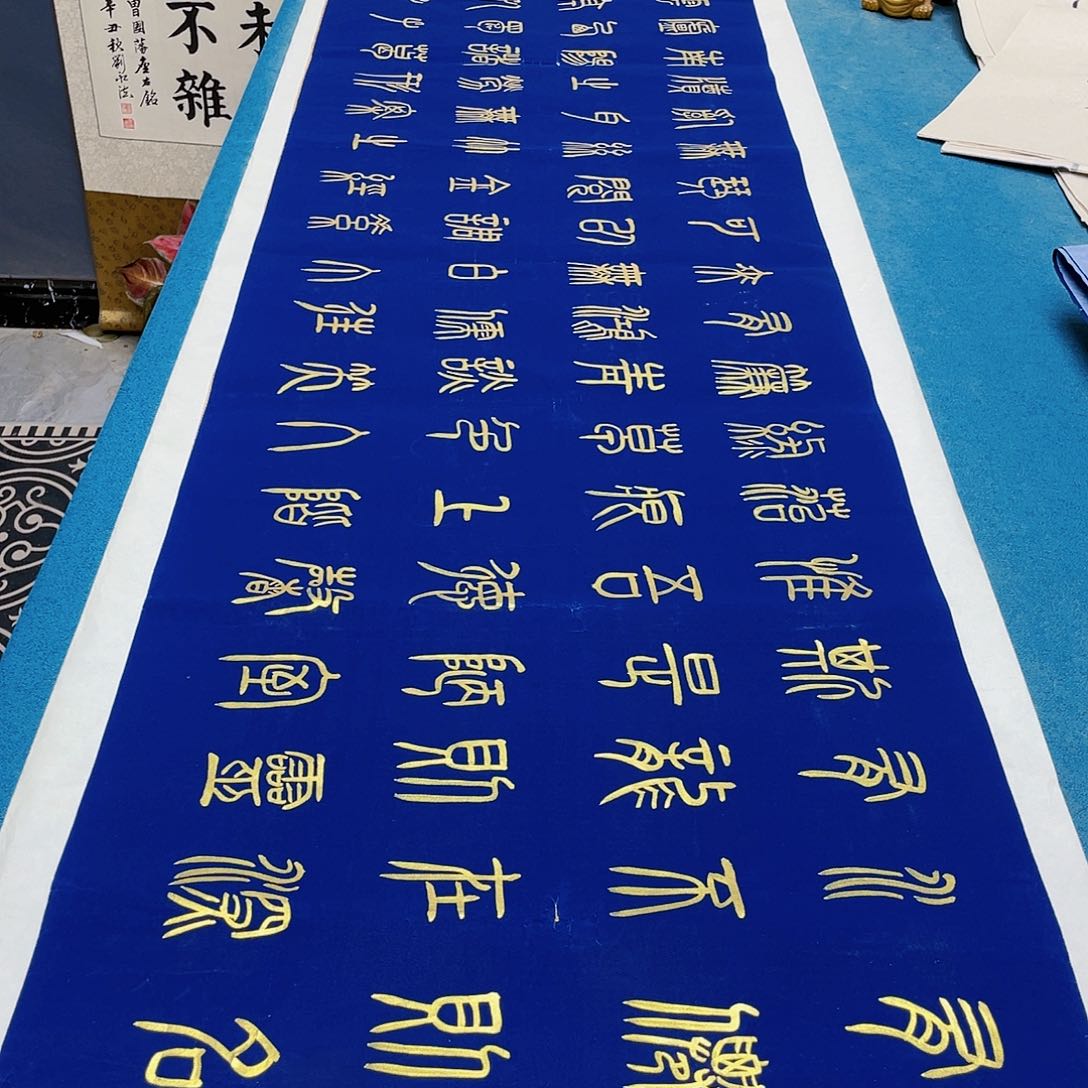 有僊則名
水不在深
有龍則靈
斯是陋室
惟吾德馨
苔痕上階
綠草色入
簾青談笑
有鴻儒往
來無白丁
可以調素
琴閱金經
無絲竹之
亂耳無案
牘之勞形
南陽諸葛
廬西蜀子
未
不雜
曾國藩座右銘
辛丑秋劉